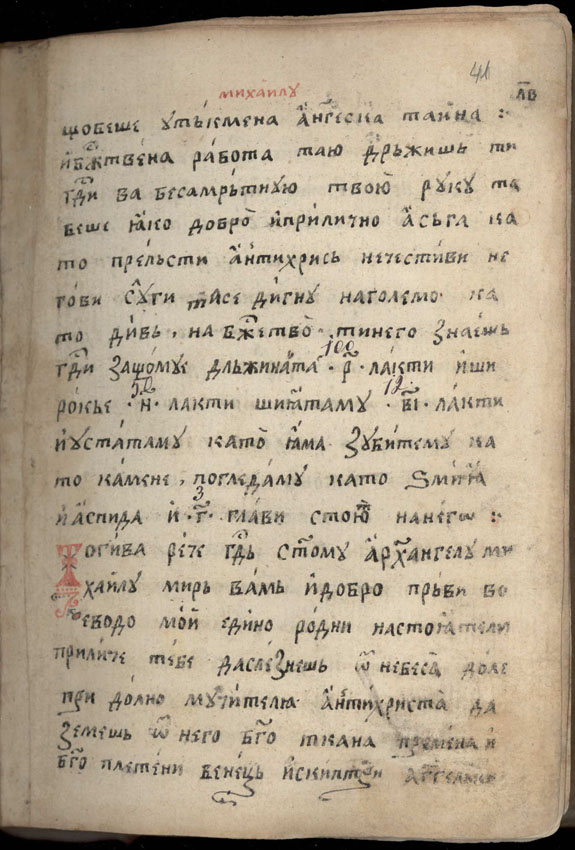 41
михаилу
л҃в
щобеше утъкмена а҆нг҃еска таина :
и҆бж҃твена работа таю дръжишъ ти
гд҃и за бесамрътную твою руку та
беше ꙗ҆ко добро и҆прилично а҆сьга ка
то прельсти а҆нтихрись нечестиви не
гови слуги тасе дигну наголемо ка
то дивь, на бж҃ество тинего знаешь
100
гд҃и защомуе длъжината ·р҃· лакти и҆ши
50 12
рокье ·н҃· лакти шиꙗтаму ·в҃і· лакти
и҆устатаму като ꙗ҆ма зубитему ка
то камене, погледаму като ѕмиꙗ
3
и҆аспида и҆ ·г҃· глави стоѧт нанегѡ :
Тогива рече гд҃ь ст҃ому а҆рха҃нгелу ми
хаилу мирь вамь и҆добро прьви во
еводо мои едино родни настоꙗтелю
приличе тебе даслезнешь ѿ небеса доле
при долно мучителю а҆нтихриста да
земешь ѿ него бг҃о ткана премена и
бг҃о плетени венець и҆скиптри